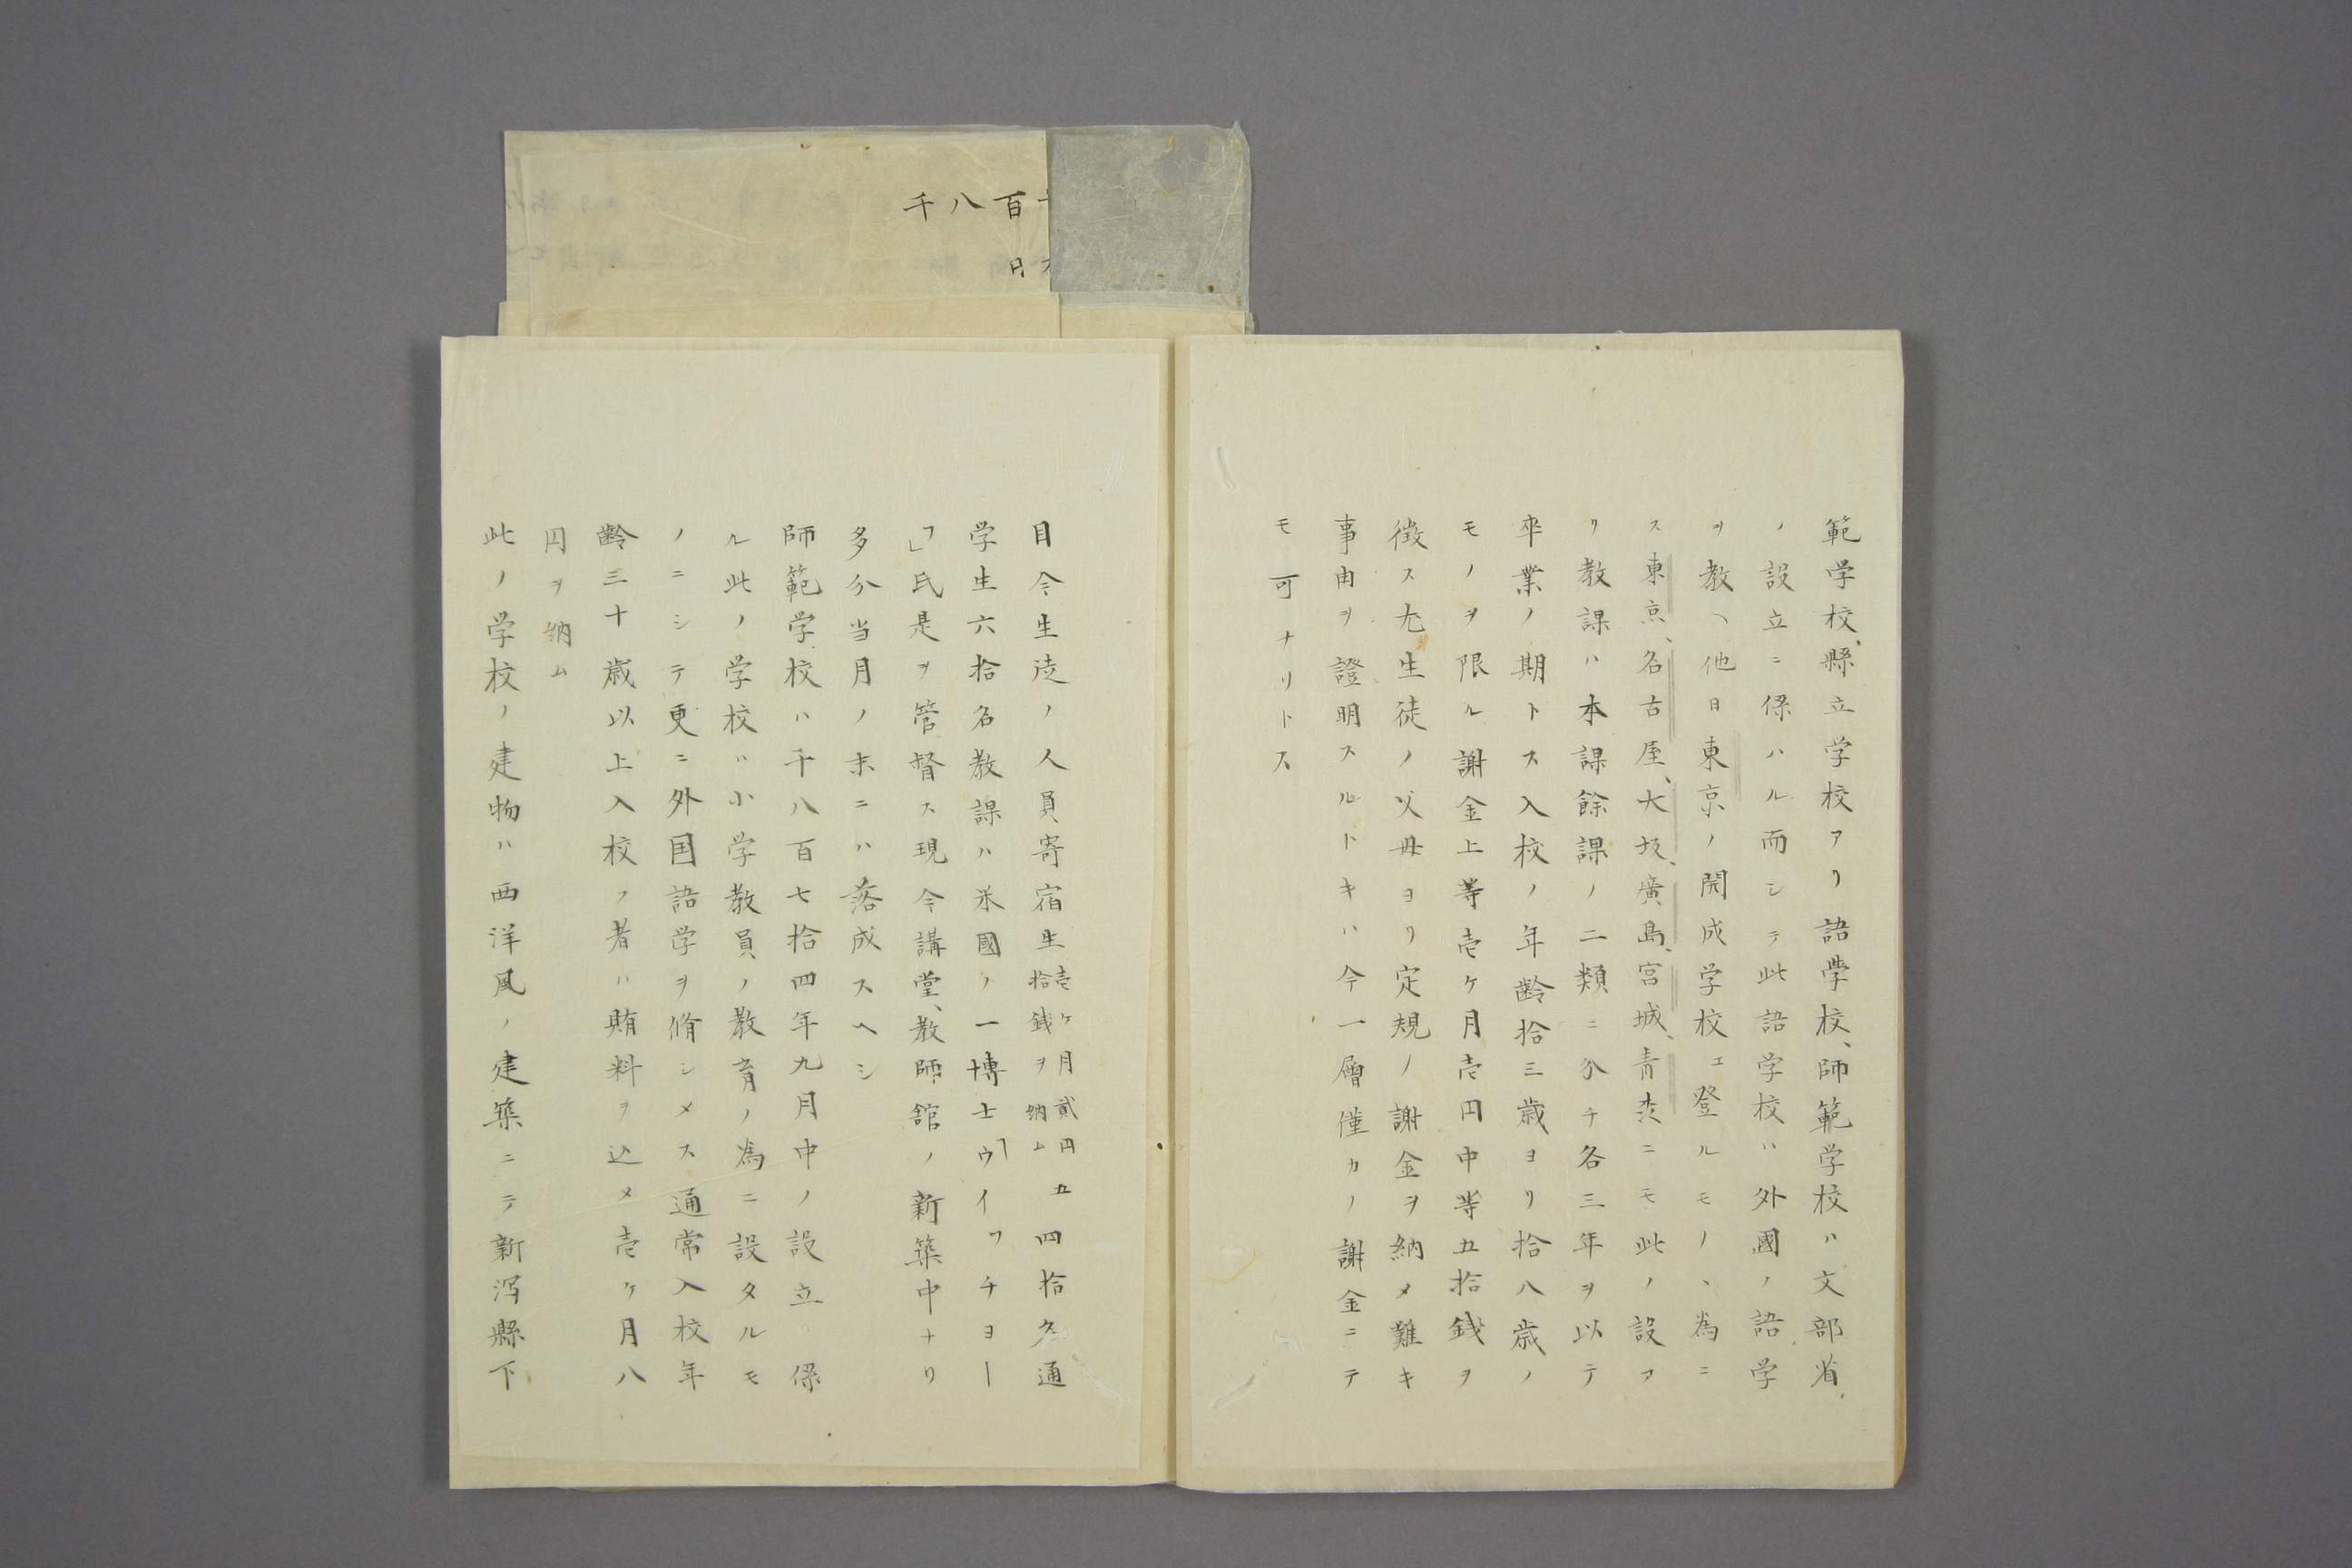 範学校、縣立学校アリ語學校、師範学校ハ文部省
ノ設立ニ係ハル而シテ此語学校ハ外國ノ語学
ヲ教ヘ他日東京ノ開成学校エ登ルモノヽ為ニ
ス東京、名古屋、大坂、廣島、宮城、青森ニモ此ノ設ア
リ教課ハ本課餘課ノ二類ニ分チ各三年ヲ以テ
卒業ノ期トス入校ノ年齢拾三歳ヨリ拾八歳ノ
モノヲ限ル謝金上等壱ケ月壱円中等五拾銭ヲ
徴ス尤生徒ノ父母ヨリ定規ノ謝金ヲ納メ難キ
事由ヲ證明スルトキハ今一層僅カノ謝金ニテ
モ可ナリトス
目今生徒ノ人員寄宿生壱ケ月貳円五拾銭ヲ納ム四拾名通
学生六拾名教課ハ米國ノ一博士「ウイワチヨー
フ」氏是ヲ管督ス現今講堂、教師館ノ新築中ナリ
多分当月ノ末ニハ落成スヘシ
師範学校ハ千八百七拾四年九月中ノ設立ニ係
ル此ノ学校ハ小学教員ノ教育ノ為ニ設タルモ
ノニシテ更ニ外国語学ヲ脩シメス通常入校年
齢三十歳以上入校ノ者ハ賄料ヲ込メ壱ケ月八
円ヲ納ム
此ノ学校ノ建物ハ西洋風ノ建築ニテ新潟縣下
千八百
日